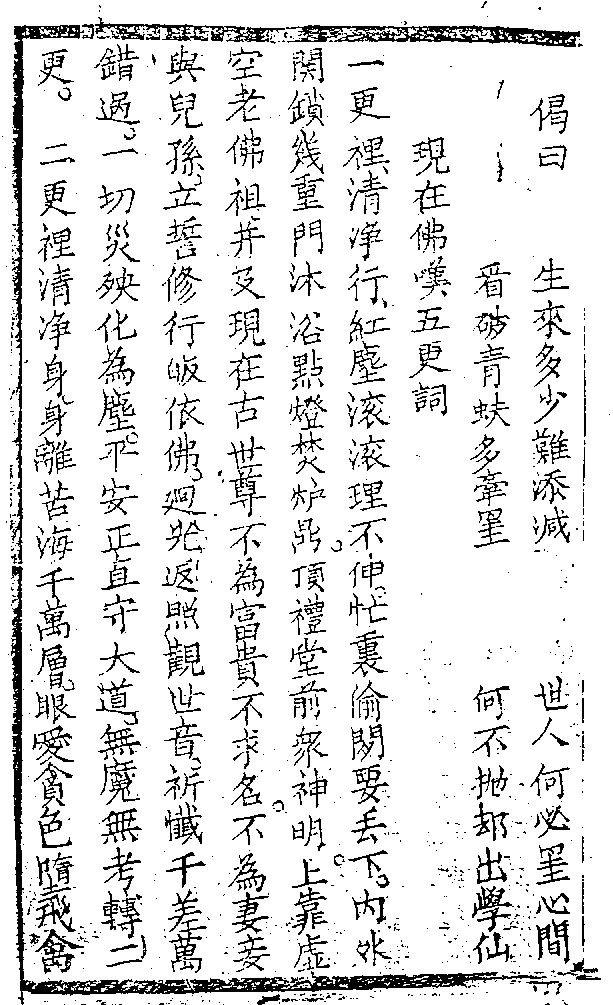 偈曰 生來多少難添減 世人何必罣心間
看破青蚨多牽罣 何不抛却出學仙
現在佛嘆五更詞
一更裡清净行、紅塵滚滚理不伸。忙裏偷閑要丢下。内外
関鎖幾重門沐浴點燈焚炉鼎。頂禮堂前衆神明。上靠虚
空老佛祖并及現在古世尊不為富貴不求名。不為妻妾
與兒孫。立誓修行皈依佛。廻光返照觀世音。祈懺千差萬
錯過。一切災殃化為塵。平安正直守大道。無魔無考轉二
更。 二更裡清净身。身離苦海千萬層。眼愛貪色墮飛禽